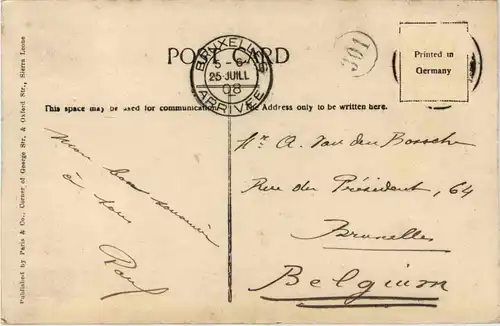 POST CARD
BRUXELLES
5 - 6
25 JUILL
08
ARRIVÉE
301
Printed in
Germany
This space may be used for communication.
The Address only to be written here.
Mon bon souvenir
à tous
Paul
Mr. A. Van den Bossche
Rue du Président, 64
Bruxelles
Belgium
Published by Paris & Co., Corner of George Str. & Oxford Str., Sierra Leone